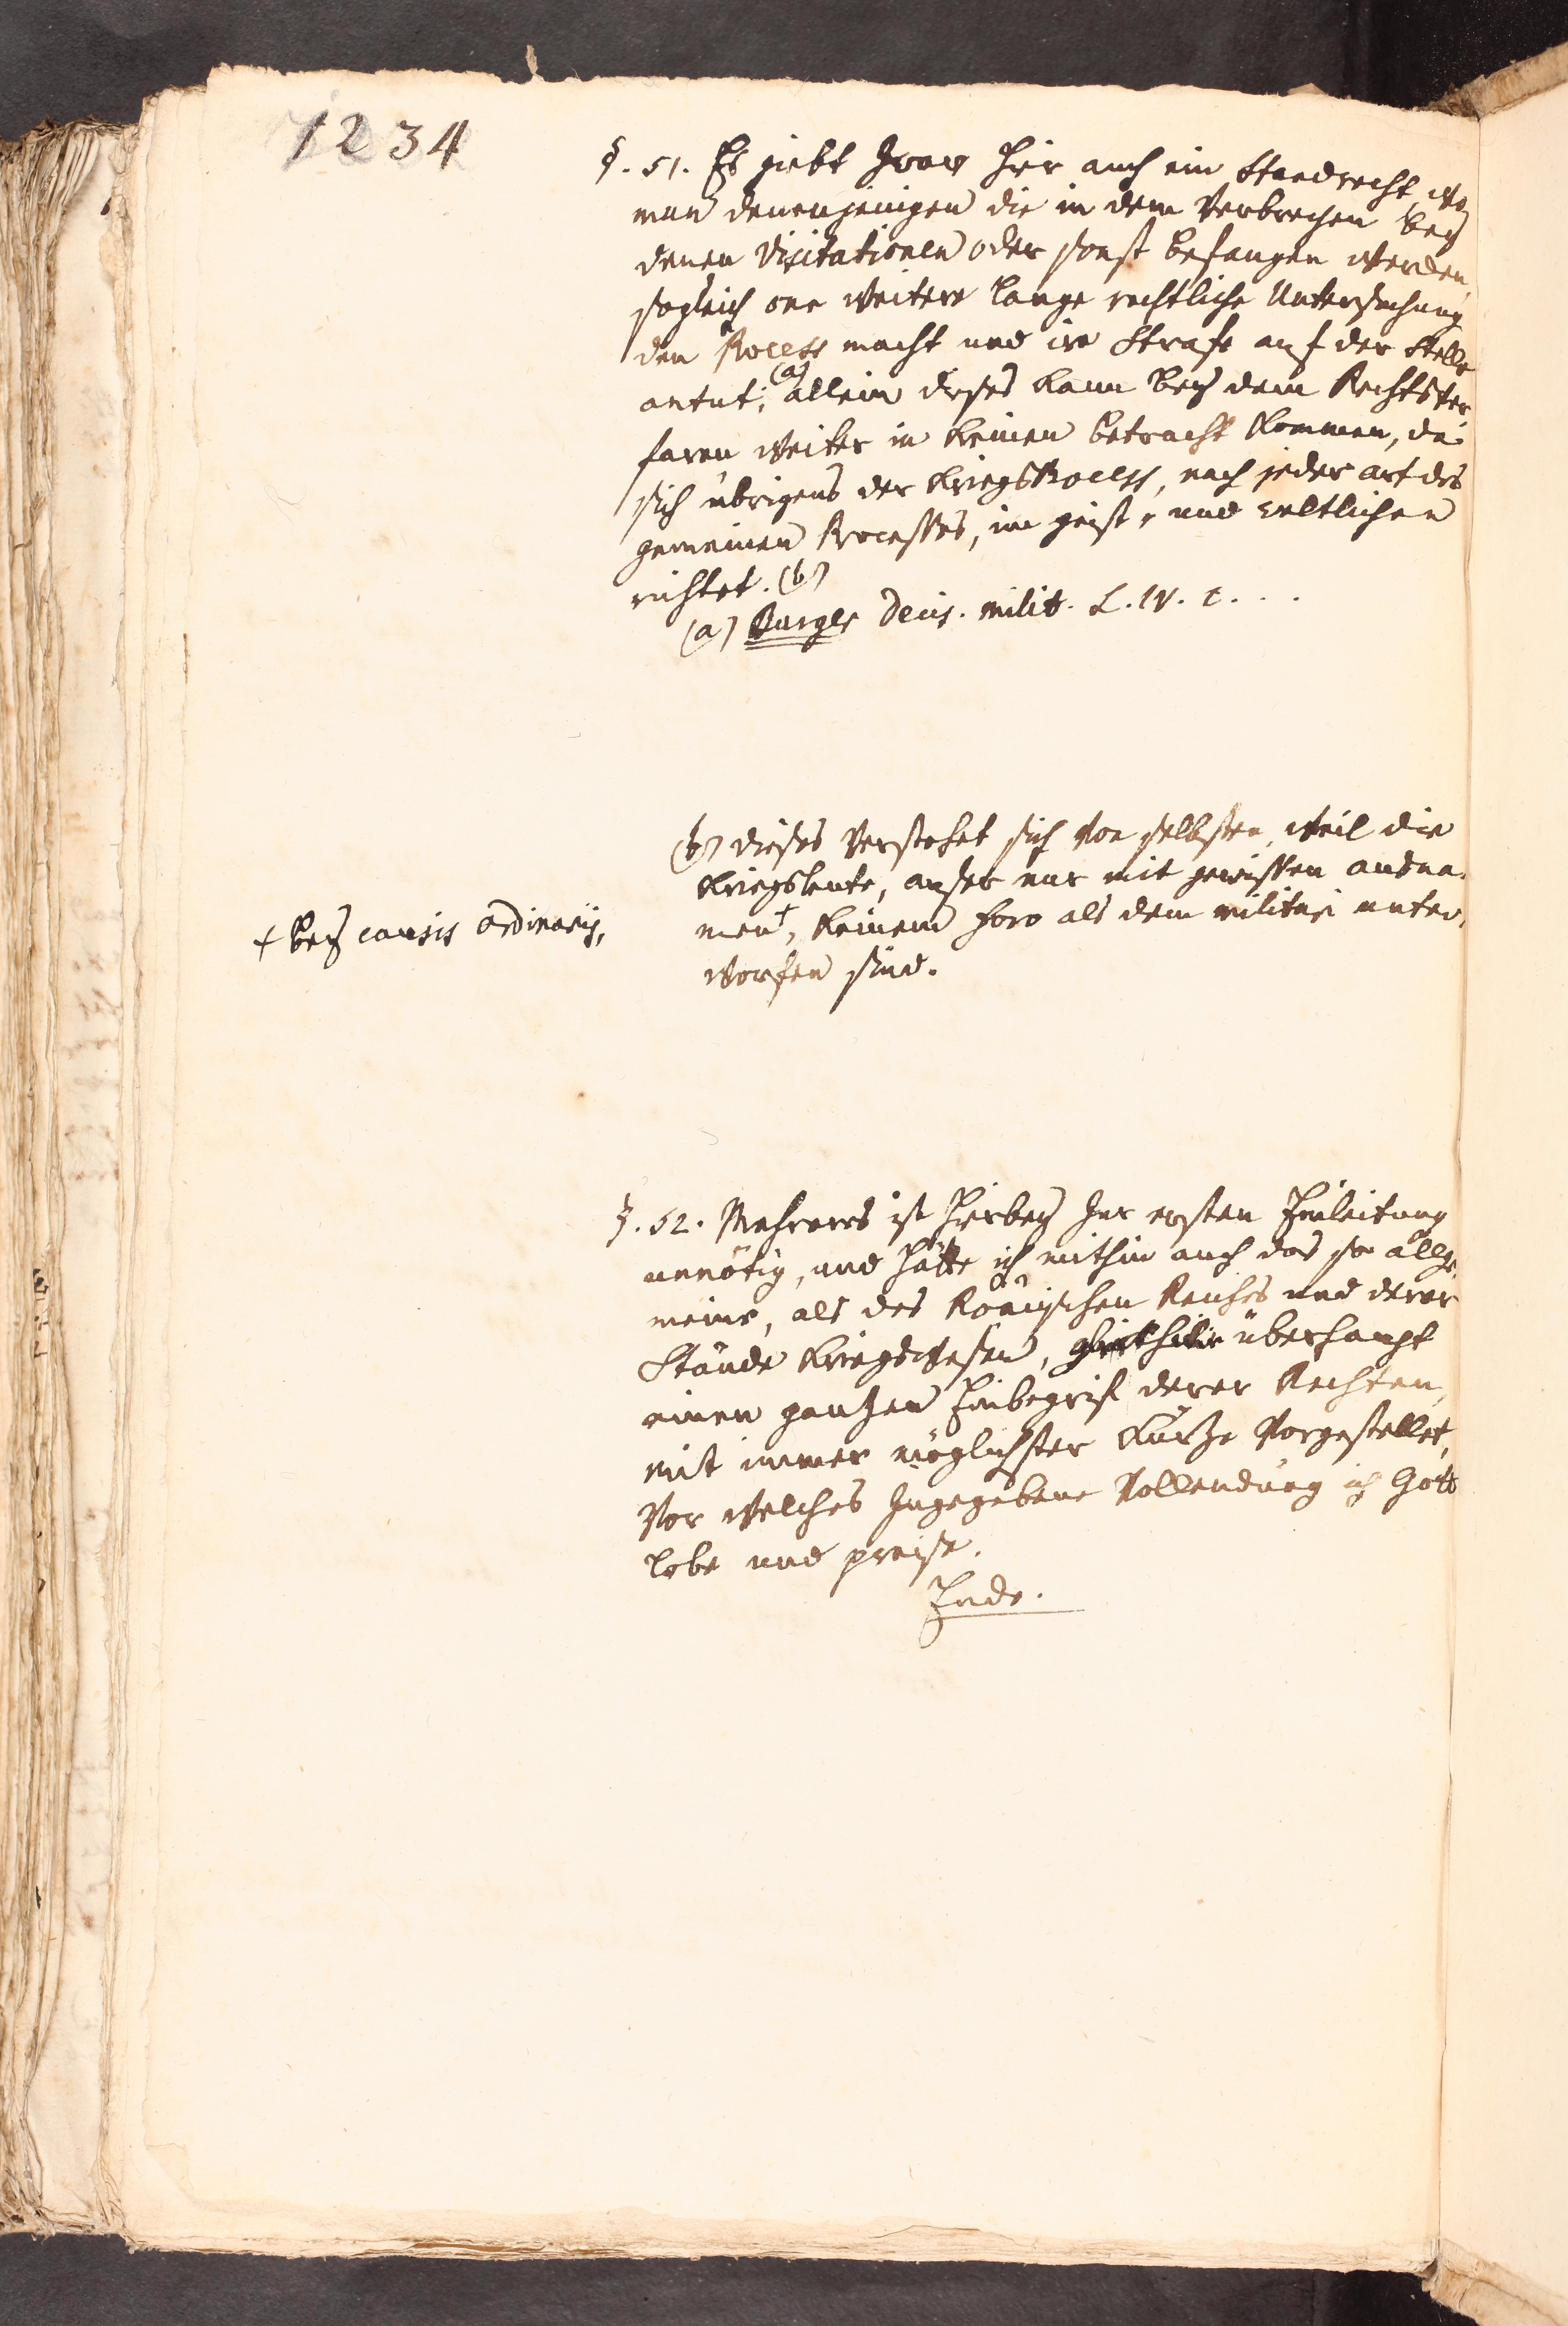 1234
§. 51. Es giebt zwar hir auch ein Standrecht, wo
man denenjenigen die in dem Verbrechen bey
denen Visitationen oder sonst befangen werden,
sogleich one weitere lange rechtliche Untersuchung
den Process macht und ire Strafe auf der Stelle
antut; (a) allein dises kann bey dem Rechtsver
faren weiter in keinen betracht kommen, da
sich übrigens der KriegsProcess, nach jeder art des
gemeinen Processes, im geist- und weltlichen
richtet. (b)
(a) Burger Decis. milit. L. IV. c. . .
(b) dieses verstehet sich von selbsten, weil die
Kriegsleute, auser nur mit gewissen ausna-
men †, keinem foro als dem militari unter-
worfen sind.
† bey causis ordinariis,
§. 52. Mehreres ist hirbey zur ersten Einleitung
unnötig, und hätte ich mithin auch das so allge
meine, als des Römischen Reiches und derer
Stände Kriegswesen, überhaupt
einen ganzen Einbegrif derer Rechten,
mit immer möglichster Kürze vorgestellet,
Vor welches zugegebene Vollendung ich Gott
lobe und preise.
Ende.